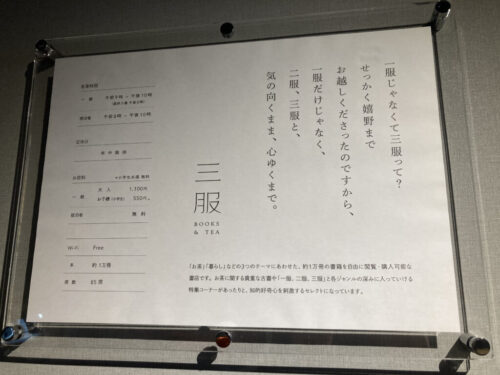 一服じゃなくて三服って?
せっかく嬉野まで
お越しくださったのですから、
一服だけじゃなく、
二服、三服と、
気の向くまま、心ゆくまで。
三服
BOOKS
& TEA
営業時間
一般 午前9時 – 午後10時
宿泊者 午前6時 – 午後10時
定休日
年中無休
お茶料
大人 1,100円
一般 お子様(小学生) 550円
宿泊者 無料
Wi-Fi Free
本 約1万冊
席数 85席
「お茶」「暮らし」などの3つのテーマにあわせた、約1万冊の書籍を自由に閲覧・購入可能な
書店です。お茶に関する貴重な古書や「一服、二服、三服」と各ジャンルの深みに入っていける
特集コーナーがあったりと、知的好奇心を刺激するセレクトになっています。